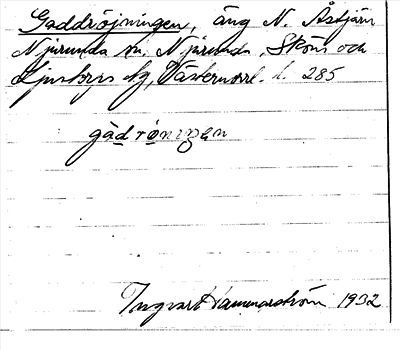 Gaddröjningen, äng N. Åstjärn
Njurunda sn, Njurunda, Sköns och
Ljustorps tg, Västernorrl. l. 285
gädröningen
Ingvar Hammarström 1932